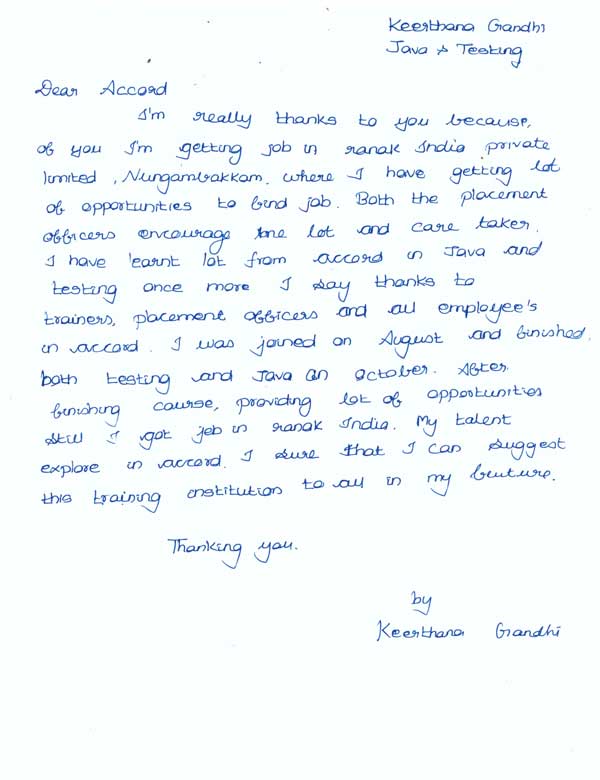 Keerthana Gandhi
Java & Testing
Dear Accord
I'm really thanks to you because,
of you I'm getting job in ranak India private
limited, Nungambakkam. where I have getting lot
of opportunities to find job. Both the placement
officers encourage me lot and care taker.
I have learnt lot from accord in Java and
testing once more I say thanks to
trainers, placement officers and all employee's
in accord. I was joined on August and finished
both testing and Java on october. After
finishing course, providing lot of opportunities
still I got job in ranak India. My talent
explore in accord. I sure that I can suggest
this training institution to all in my feuture.
Thanking you.
by
Keerthana Gandhi